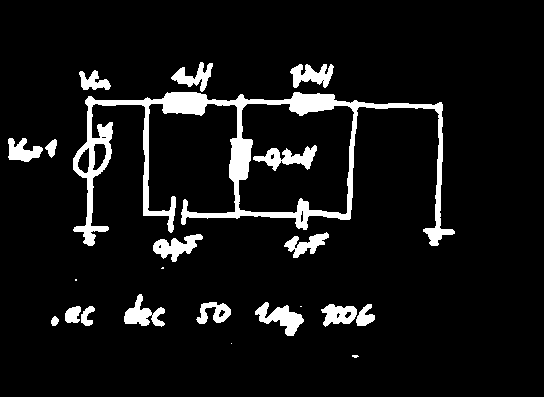 Vin 1nH 1nH
Vac=1 V1 -0,2nH
0,1pF 1pF
.ac dec 50 1Meg 100G